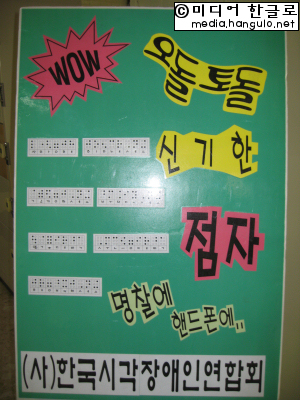 ⓒ미디어 한글로
media.hangulo.net
WOW
오돌토돌
신기한
점자
명찰에
핸드폰에,,
(사)한국시각장애인연합회